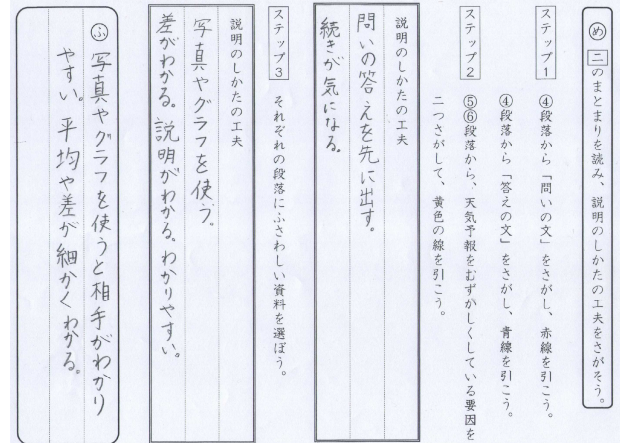 め 二のまとまりを読み、説明のしかたの工夫をさがそう。
ステップ1 ④段落から「問いの文」をさがし、赤線を引こう。
④段落から「答えの文」をさがし、青線を引こう。
ステップ2 ⑤⑥段落から、天気予報をむずかしくしている要因を
二つさがして、黄色の線を引こう。
説明のしかたの工夫
問いの答えを先に出す。
続きが気になる。
ステップ3 それぞれの段落にふさわしい資料を選ぼう。
説明のしかたの工夫
写真やグラフを使う。
差がわかる。説明がわかる。わかりやすい。
ふ 写真やグラフを使うと相手がわかり
やすい。平均や差が細かくわかる。